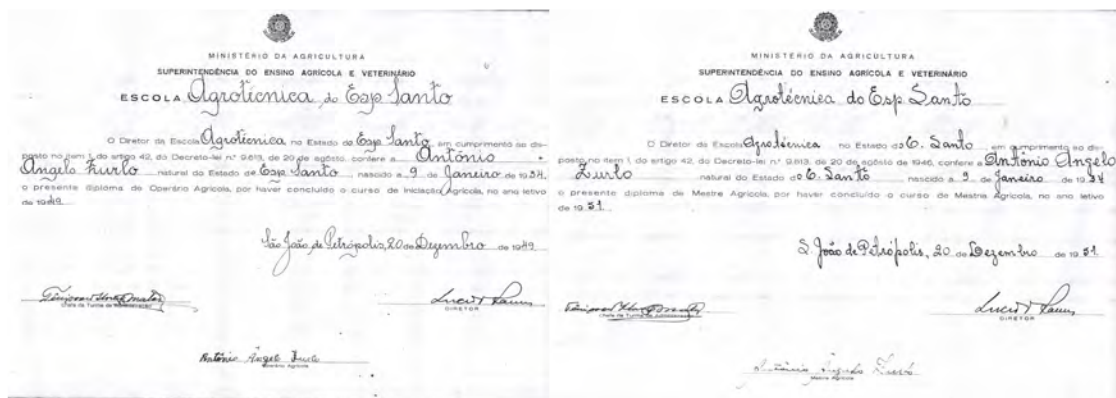 MINISTÉRIO DA AGRICULTURA
SUPERINTENDÊNCIA DO ENSINO AGRÍCOLA E VETERINÁRIO
ESCOLA Agrotécnica do Esp Santo
O Diretor da Escola Agrotécnica, no Estado do Esp Santo, em cumprimento ao dis-
posto no item 1, do artigo 42, do Decreto-lei n.º 9.613, de 20 de agôsto, confere a Antônio
Angelo Zurlo natural do Estado de Esp Santo nascido a 9 de Janeiro de 1934
o presente diploma de Operário Agrícola, por haver concluído o curso de Iniciação Agrícola, no ano letivo
de 1949.
São João de Petrópolis, 20 de Dezembro de 1949
Chefe da Turma de Administração
DIRETOR
Operário Agrícola
MINISTÉRIO DA AGRICULTURA
SUPERINTENDÊNCIA DO ENSINO AGRÍCOLA E VETERINÁRIO
ESCOLA Agrotécnica do Esp. Santo
O Diretor da Escola Agrotécnica no Estado do E. Santo, em cumprimento ao dis-
posto no item 1, do artigo 42, do Decreto-lei n.º 9.613, de 20 de agôsto de 1946, confere a Antônio Angelo
Zurlo natural do Estado do E. Santo nascido a 9 de Janeiro de 1934
o presente diploma de Mestre Agrícola, por haver concluído o curso de Mestre Agrícola, no ano letivo
de 1951.
S. João de Petrópolis, 20 de Dezembro de 1951
Chefe da Turma de Administração
DIRETOR
Antônio Angelo Zurlo
Mestre Agrícola